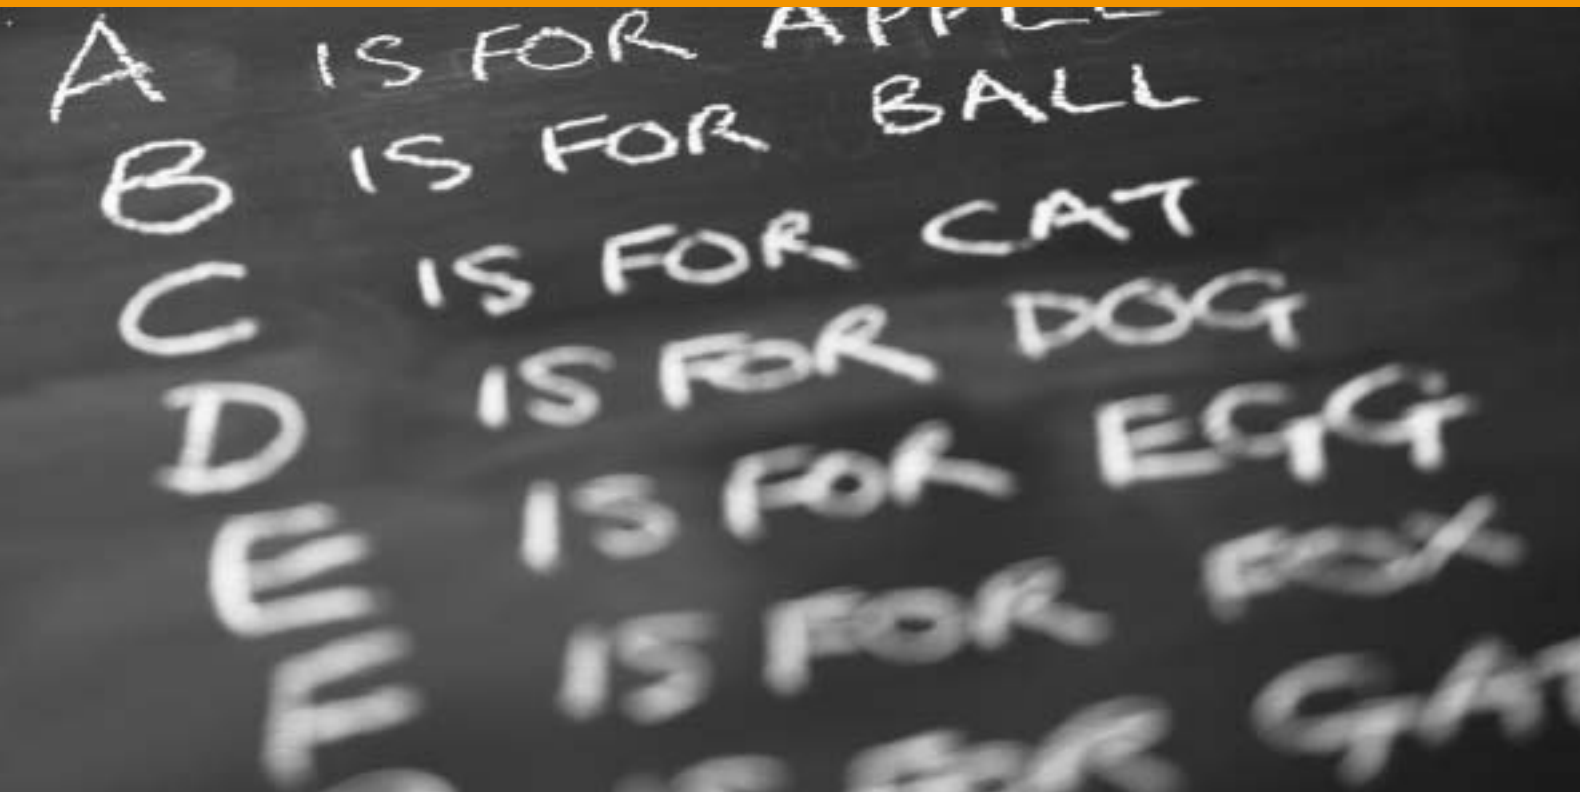 A IS FOR APPLE
B IS FOR BALL
C IS FOR CAT
D IS FOR DOG
E IS FOR EGG
F IS FOR FOX
IS FOR